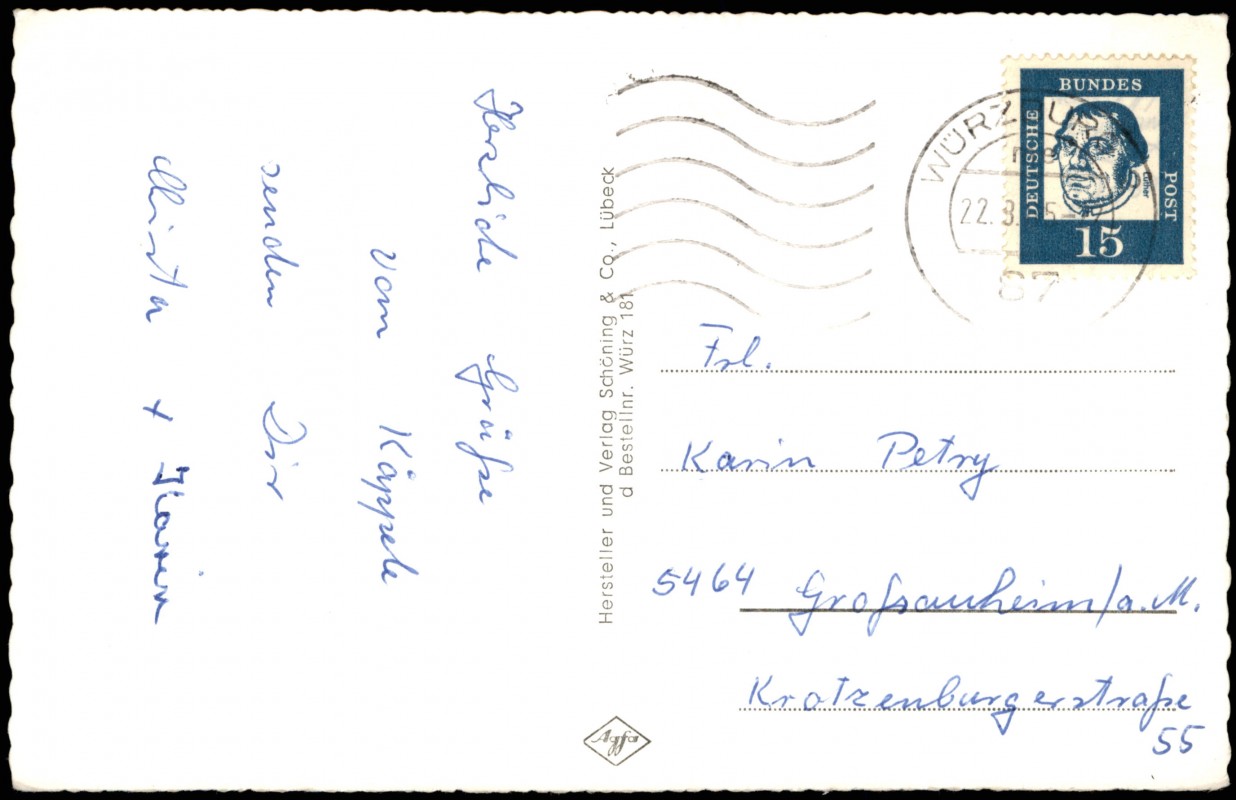 Herzliche Grüße
vom Käppele
senden Dir
Christa + Karin
Hersteller und Verlag Schöning & Co., Lübeck
d Bestellnr. Würz 181
BUNDES
DEUTSCHE
POST
Luther
15
WÜRZBURG
22.8. 5-
87
Frl.
Karin Petry
5464 Großauheim/a.M.
Krotzenburgerstraße
55
Agfa